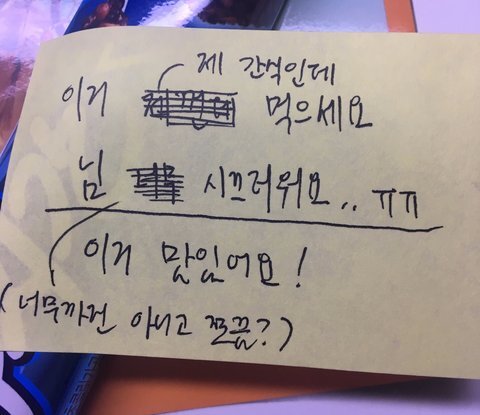 제 간식인데
이거 먹으세요
님 시끄러워요.. ㅠㅠ
이거 맛있어요!
(너무까진 아니고 쪼끔?)